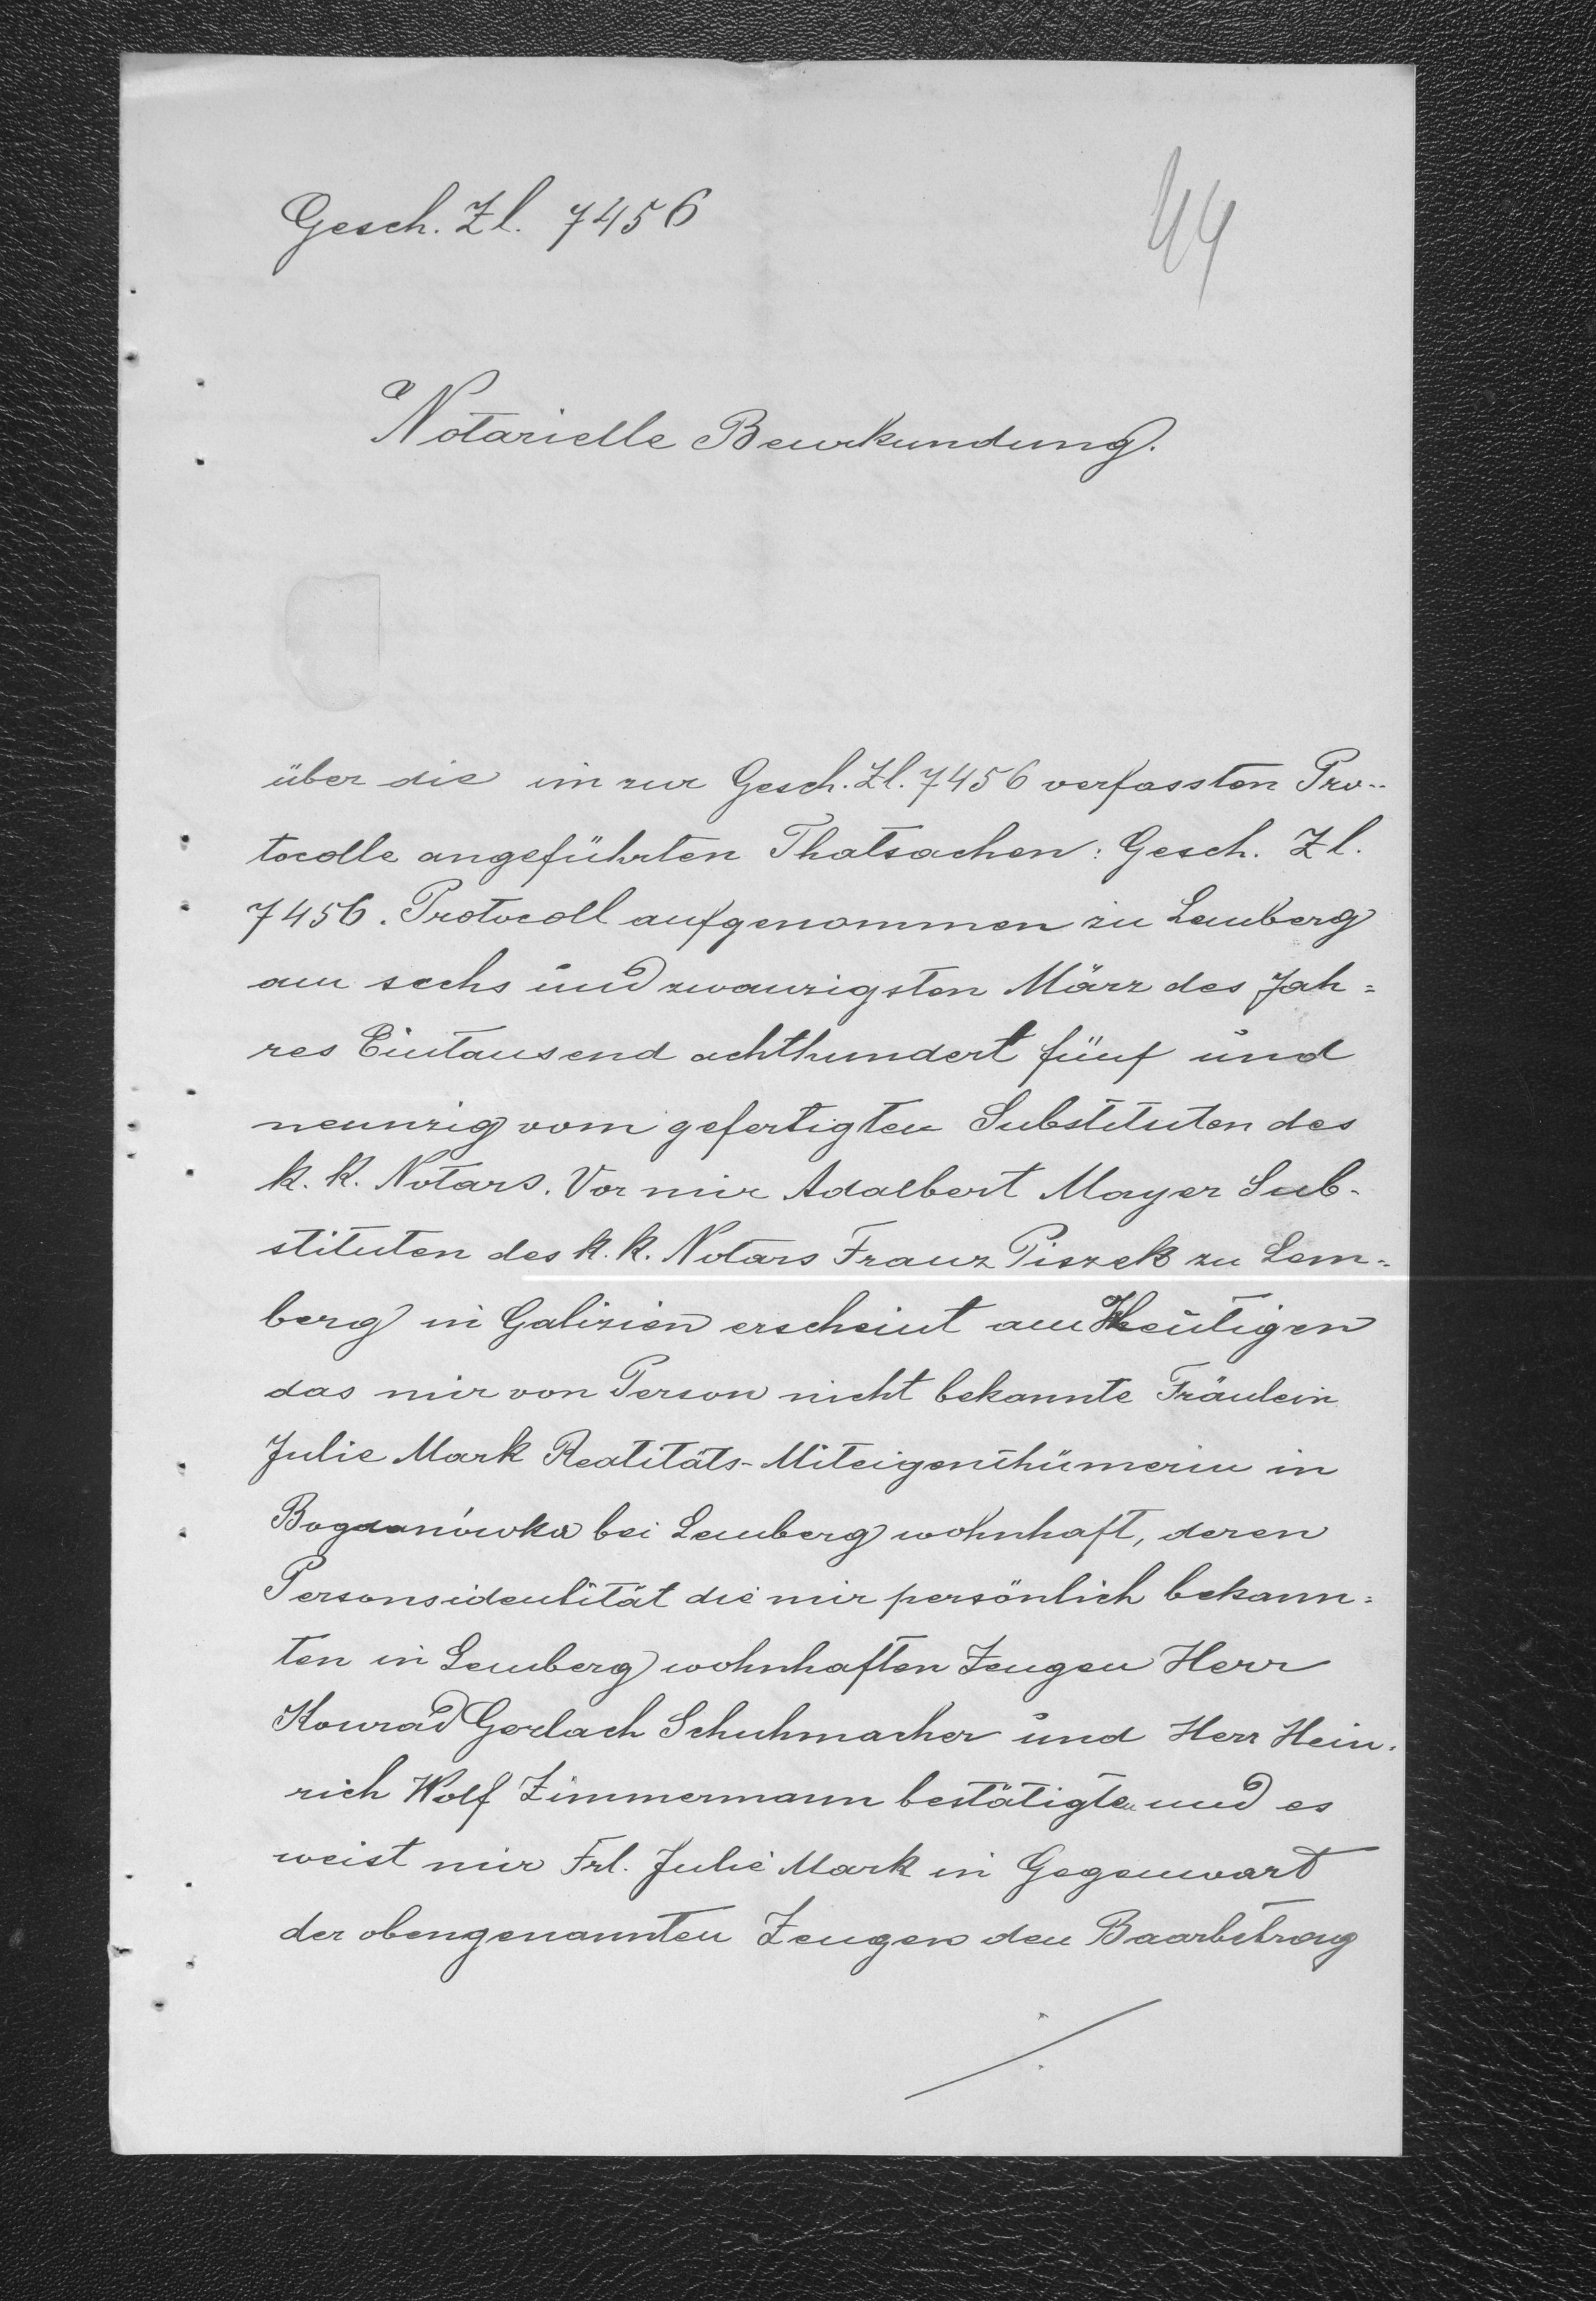 Gesch. Zl. 7456
44
Notarielle Beurkundung.
über die im zur Gesch. Zl. 7456 verfassten Pro-
tocolle angeführten Thatsachen: Gesch. Zl.
7456. Protocoll aufgenommen zu Lemberg
am sechs und zwanzigsten März des Jah=
res Eintausend achthundert fünf und
neunzig vom gefertigten Substituten des
k. k. Notars. Vor mir Adalbert Mayer Sub-
stituten des k. k. Notars Franz Piszek zu Lem=
berg in Galizien erscheint am Heutigen
das mir von Person nicht bekannte Fräulein
Julie Mark Realitäts-Miteigenthümerin in
Bogdanówka bei Lemberg wohnhaft, deren
Personsidentität die mir persönlich bekann=
ten in Lemberg wohnhaften Zeugen Herr
Konrad Gerlach Schuhmacher und Herr Hein-
rich Wolf Zimmermann bestätigten und es
weist mir Frl. Julie Mark in Gegenwart
der obengenannten Zeugen den Baarbetrag
./.